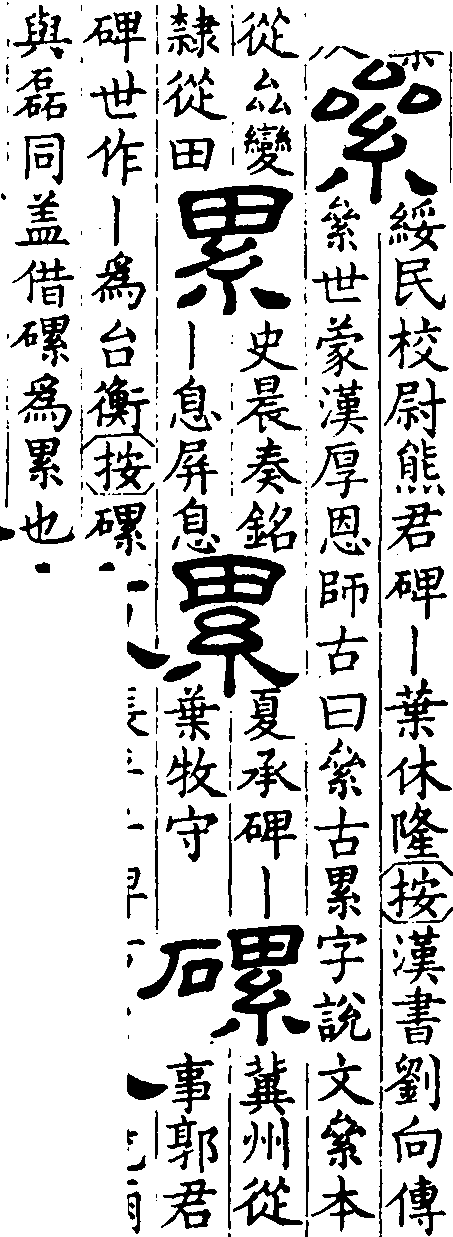 絫
綏民校尉熊君碑丨葉休隆按漢書劉向傳
絫世蒙漢厚恩師古曰絫古累字說文絫本
從厽變
隸從田
累
史晨奏銘
丨息屏息
累
夏承碑丨
葉牧守
磥
冀州從
事郭君
碑世作丨爲台衡按磥
與磊同盖借磥爲累也